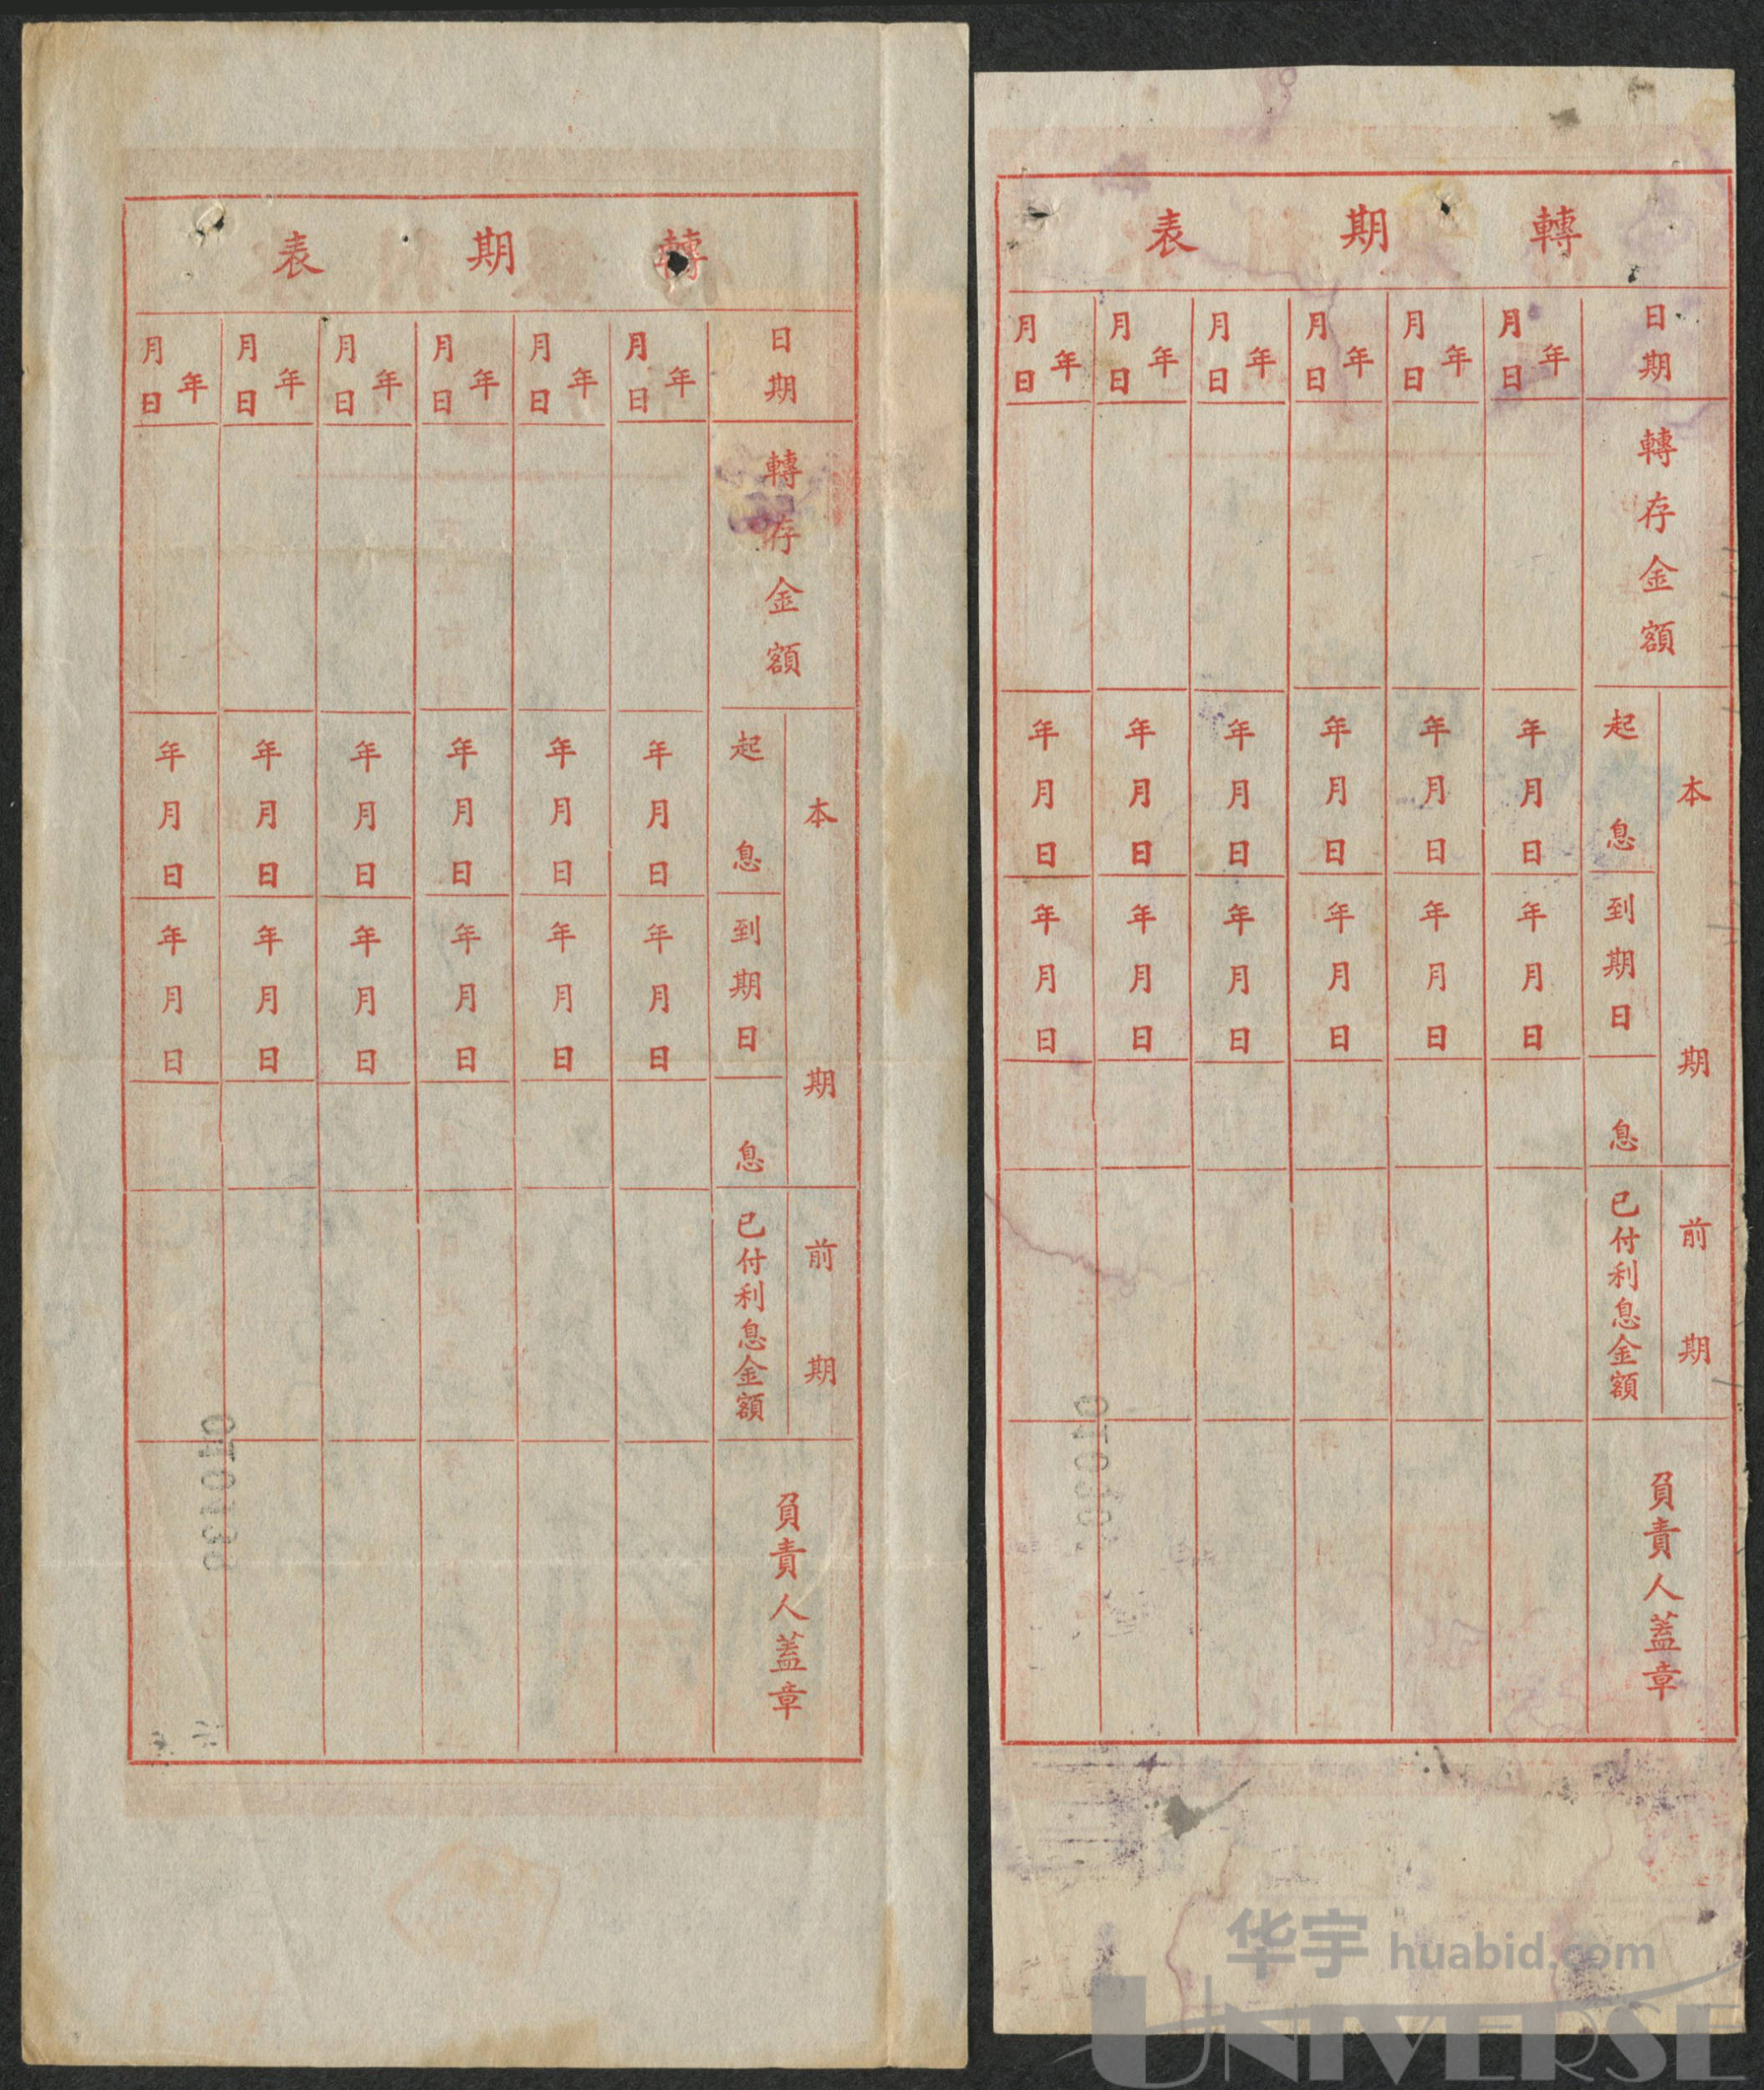 轉期表
日期
年月日
年月日
年月日
年月日
年月日
年月日
轉存金額
本期
起息
年月日
年月日
年月日
年月日
年月日
年月日
到期日
年月日
年月日
年月日
年月日
年月日
年月日
息
前期
已付利息金額
負責人蓋章
轉期表
日期
年月日
年月日
年月日
年月日
年月日
年月日
轉存金額
本期
起息
年月日
年月日
年月日
年月日
年月日
年月日
到期日
年月日
年月日
年月日
年月日
年月日
年月日
息
前期
已付利息金額
負責人蓋章
华宇 huabid.com
UNIVERSE